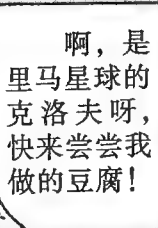 啊，是
里马星球的
克洛夫呀，
快来尝尝我
做的豆腐！